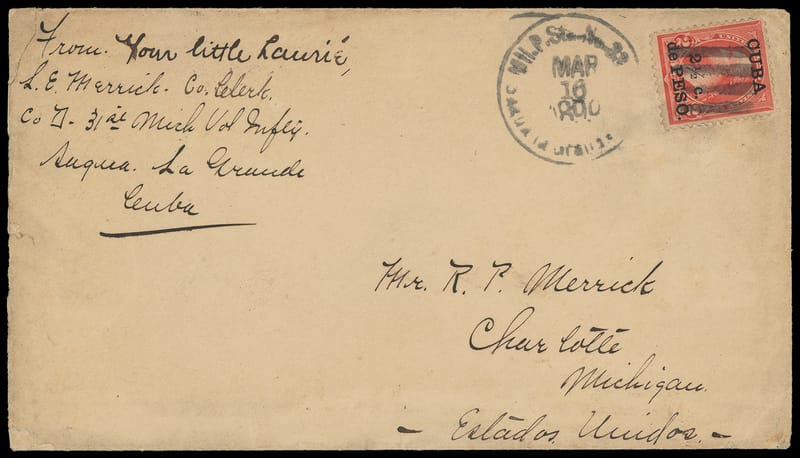 From. Your little Laurie,
L. E. Merrick - Co. Clerk.
Co D - 31st Mich Vol Infty.
Sagua La Grande
Cuba
MIL. P. Sta. No.
MAR
16
CUBA
2½ c.
de PESO.
Mr. R. P. Merrick
Charlotte
Michigan.
- Estados Unidos. -